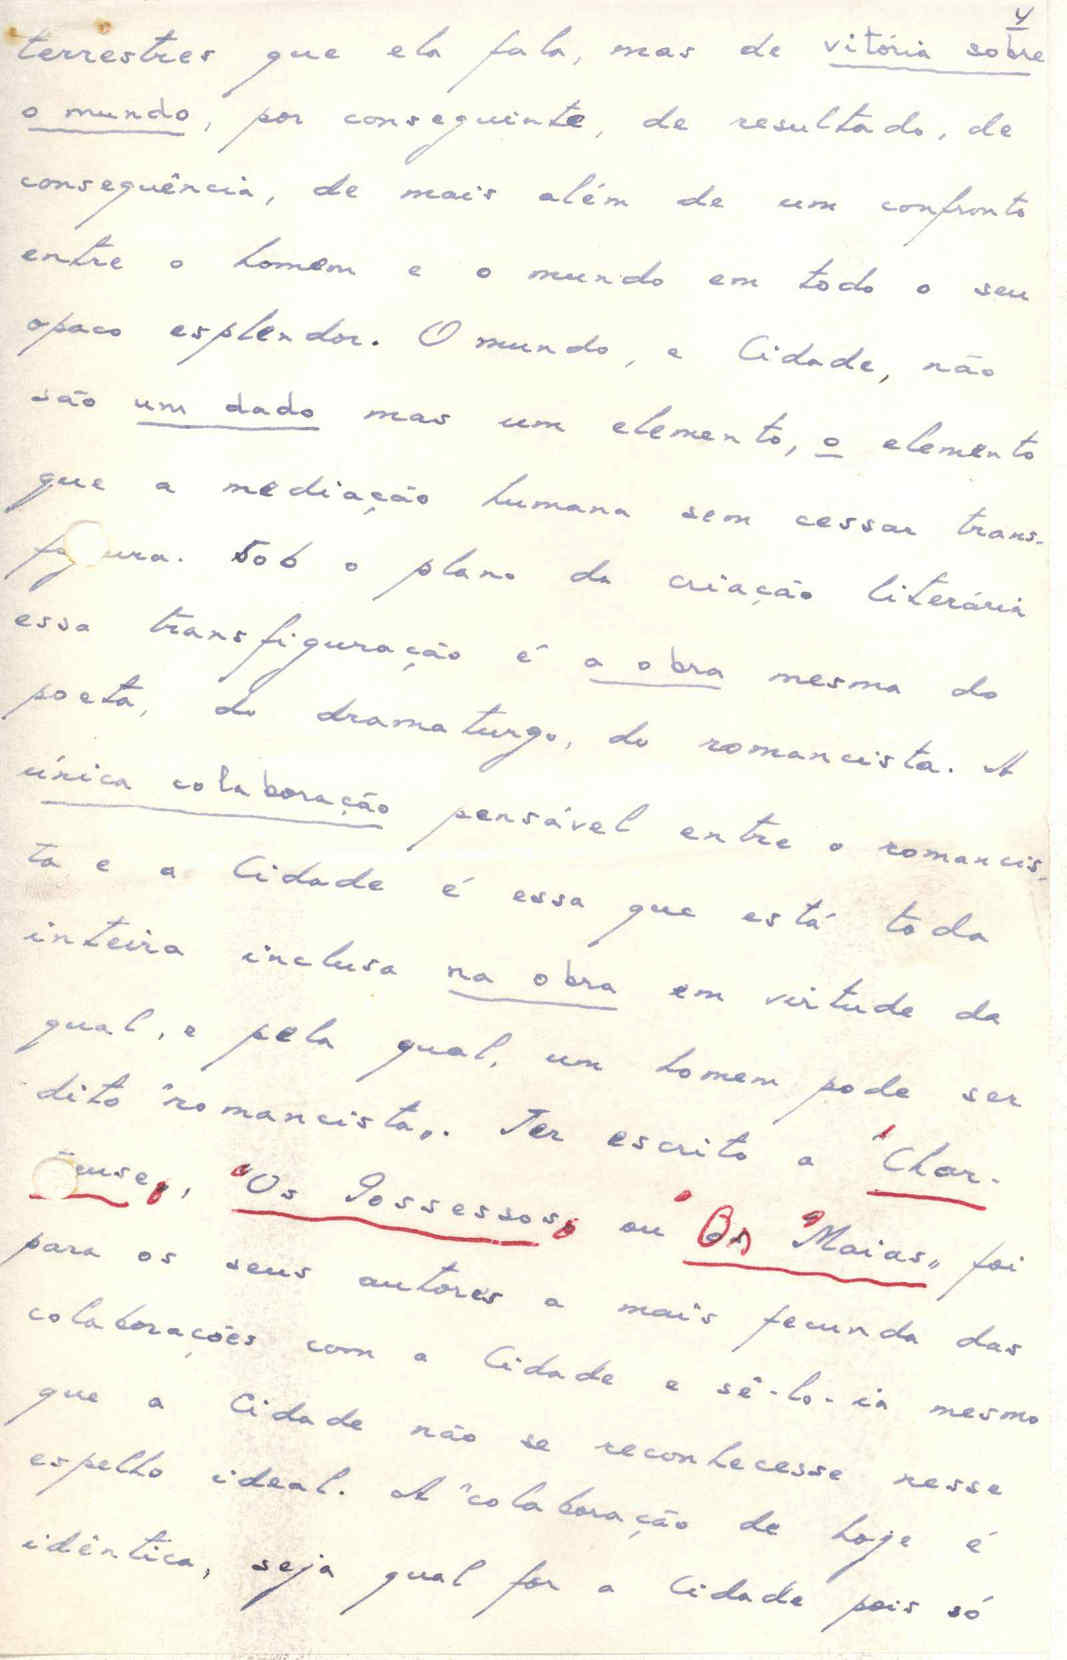 4
terrestres que ela fala, mas de vitória sobre
o mundo, por conseguinte, de resultado, de
consequência, de mais além de um confronto
entre o homem e o mundo em todo o seu
opaco esplendor. O mundo, a Cidade, não
são um dado mas um elemento, o elemento
que a mediação humana sem cessar trans-
figura. Sob o plano da criação literária
essa transfiguração é a obra mesma do
poeta, do dramaturgo, do romancista. A
única colaboração pensável entre o romancis-
ta e a Cidade é essa que está toda
inteira inclusa na obra em virtude da
qual, e pela qual, um homem pode ser
dito "romancista". Ter escrito a "Char-
euse", "Os Possessos" ou "Os "Maias" foi
para os seus autores a mais fecunda das
colaborações com a Cidade e sê-lo-ia mesmo
que a Cidade não se reconhecesse nesse
espelho ideal. A "colaboração de hoje é
idêntica, seja qual for a Cidade pois só